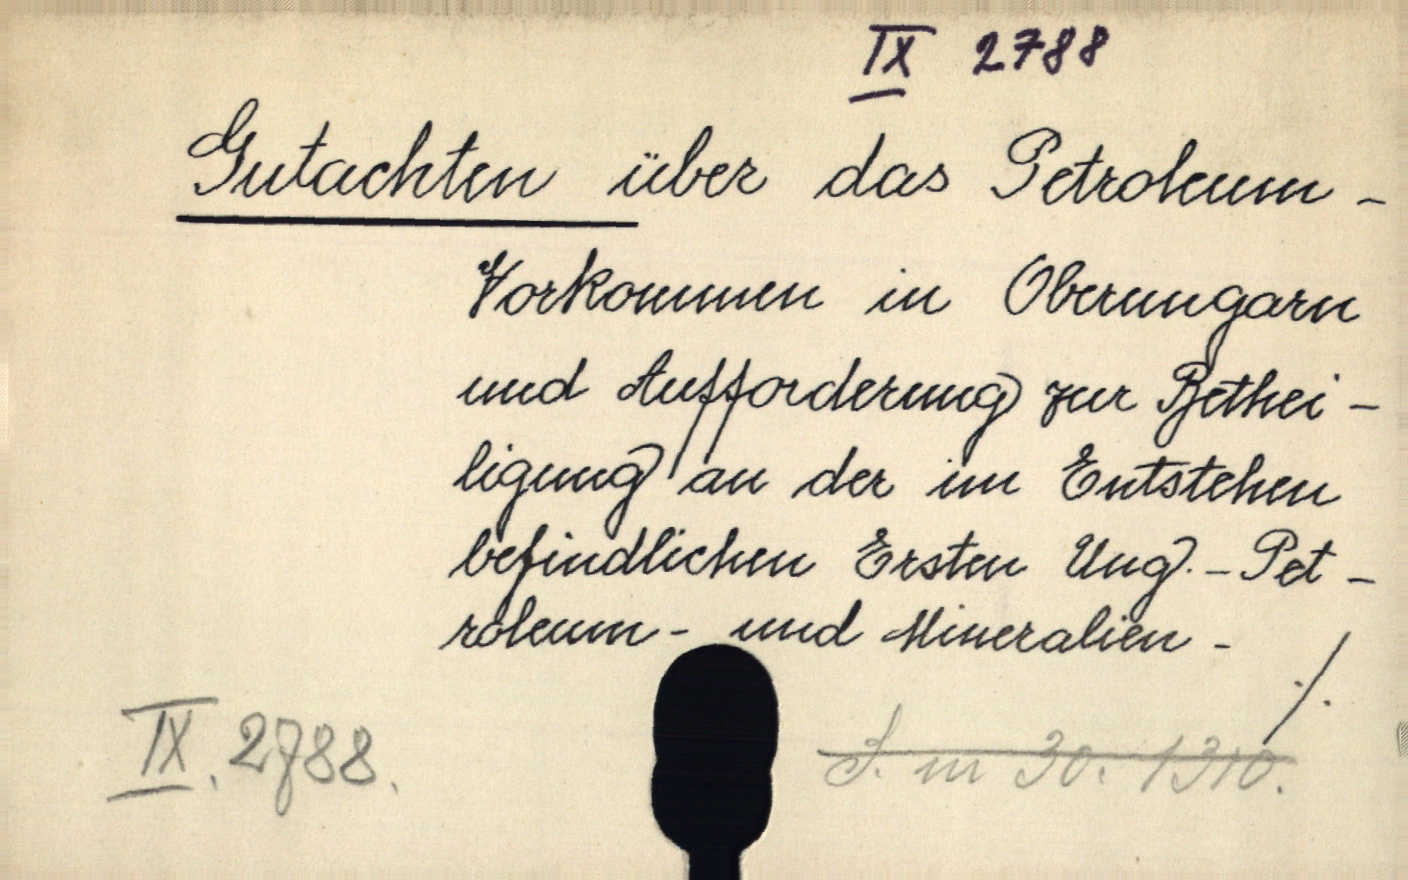 IX 2788
Gutachten über das Petroleum-
Vorkommen in Oberungarn
und Aufforderung zur Bethei-
ligung an der im Entstehen
befindlichen Ersten Ung.-Pet-
roleum- und Mineralien-
./.
IX. 2788.
J. m 30. 1310.